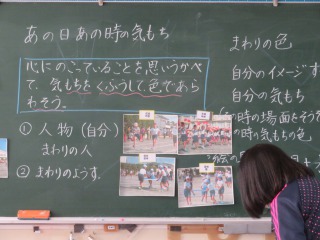 あの日あの時の気もち
心にのこっていることを思いうかべ
て、気もちをくふうして色であら
わそう。
① 人物(自分)
まわりの人
② まわりのようす。
まわりの色
自分のイメージす
自分の気もち
の時の場面をそう
の時の気もちの色